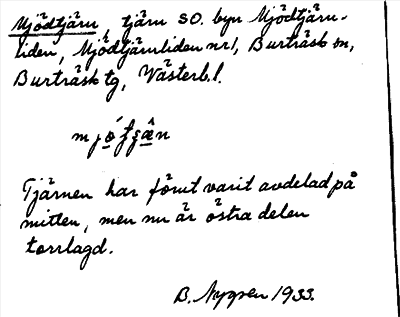 Mjödtjärn tjärn SO. byn Mjödtjärn-
liden, Mjödtjärnliden nr 1, Burträsk sn,
Burträsk tg, Västerb. l.
Tjärnen har förut varit avdelad på
mitten, men nu är östra delen
torrlagd.
B. Nygren 1933.